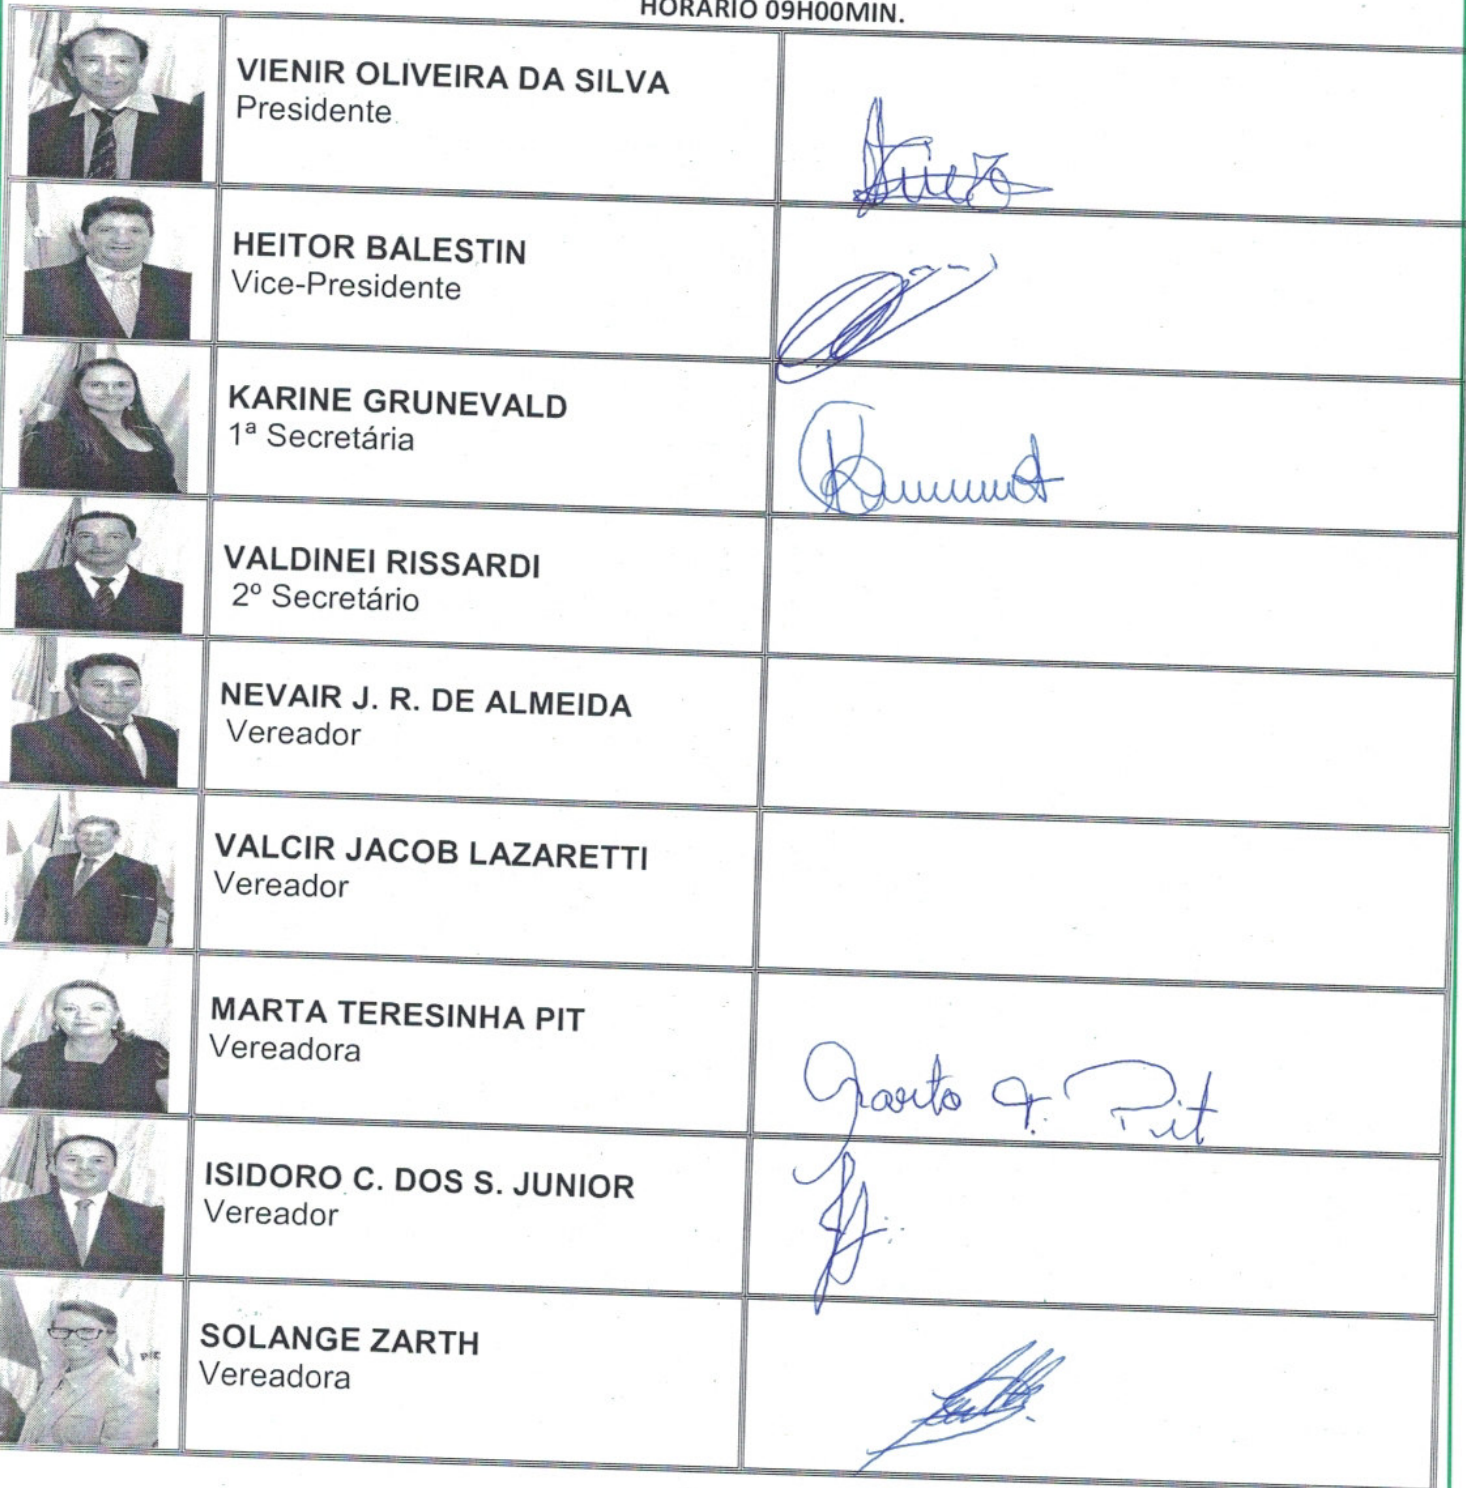 HORÁRIO 09H00MIN.
VIENIR OLIVEIRA DA SILVA
Presidente
HEITOR BALESTIN
Vice-Presidente
KARINE GRUNEVALD
1ª Secretária
VALDINEI RISSARDI
2º Secretário
NEVAIR J. R. DE ALMEIDA
Vereador
VALCIR JACOB LAZARETTI
Vereador
MARTA TERESINHA PIT
Vereadora
Marta T. Pit
ISIDORO C. DOS S. JUNIOR
Vereador
SOLANGE ZARTH
Vereadora